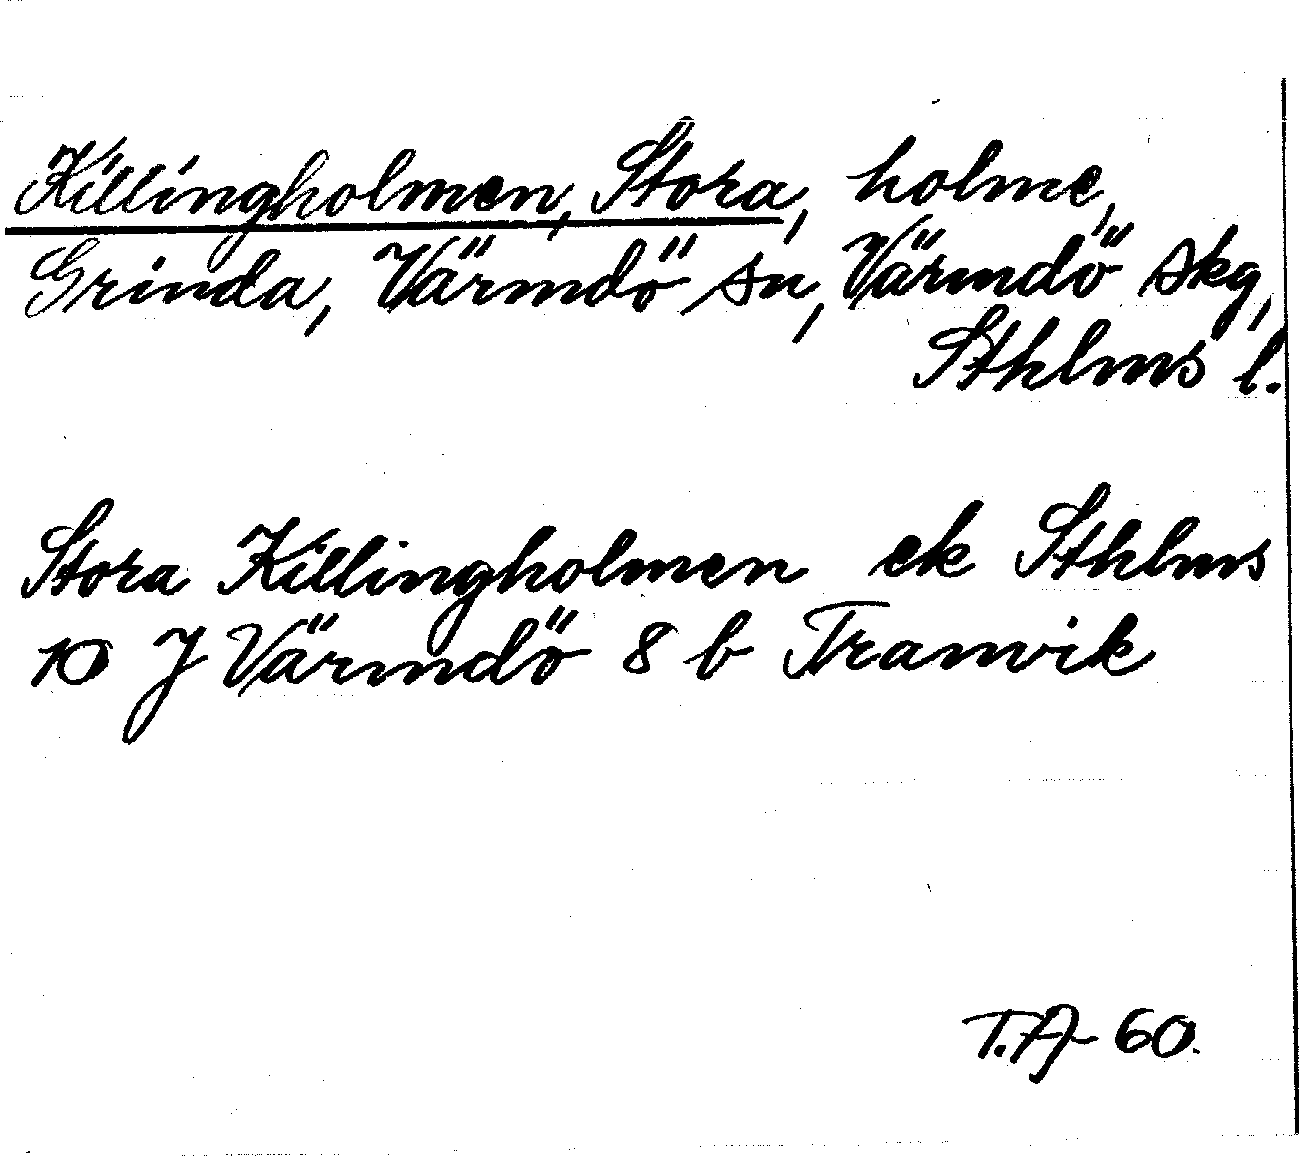 Killingholmen, Stora, holme,
Grinda, Värmdö sn, Värmdö skg,
Sthlms l.
Stora Killingholmen ek Sthlms
10 J Värmdö 8 b Tranvik
T.A 60.